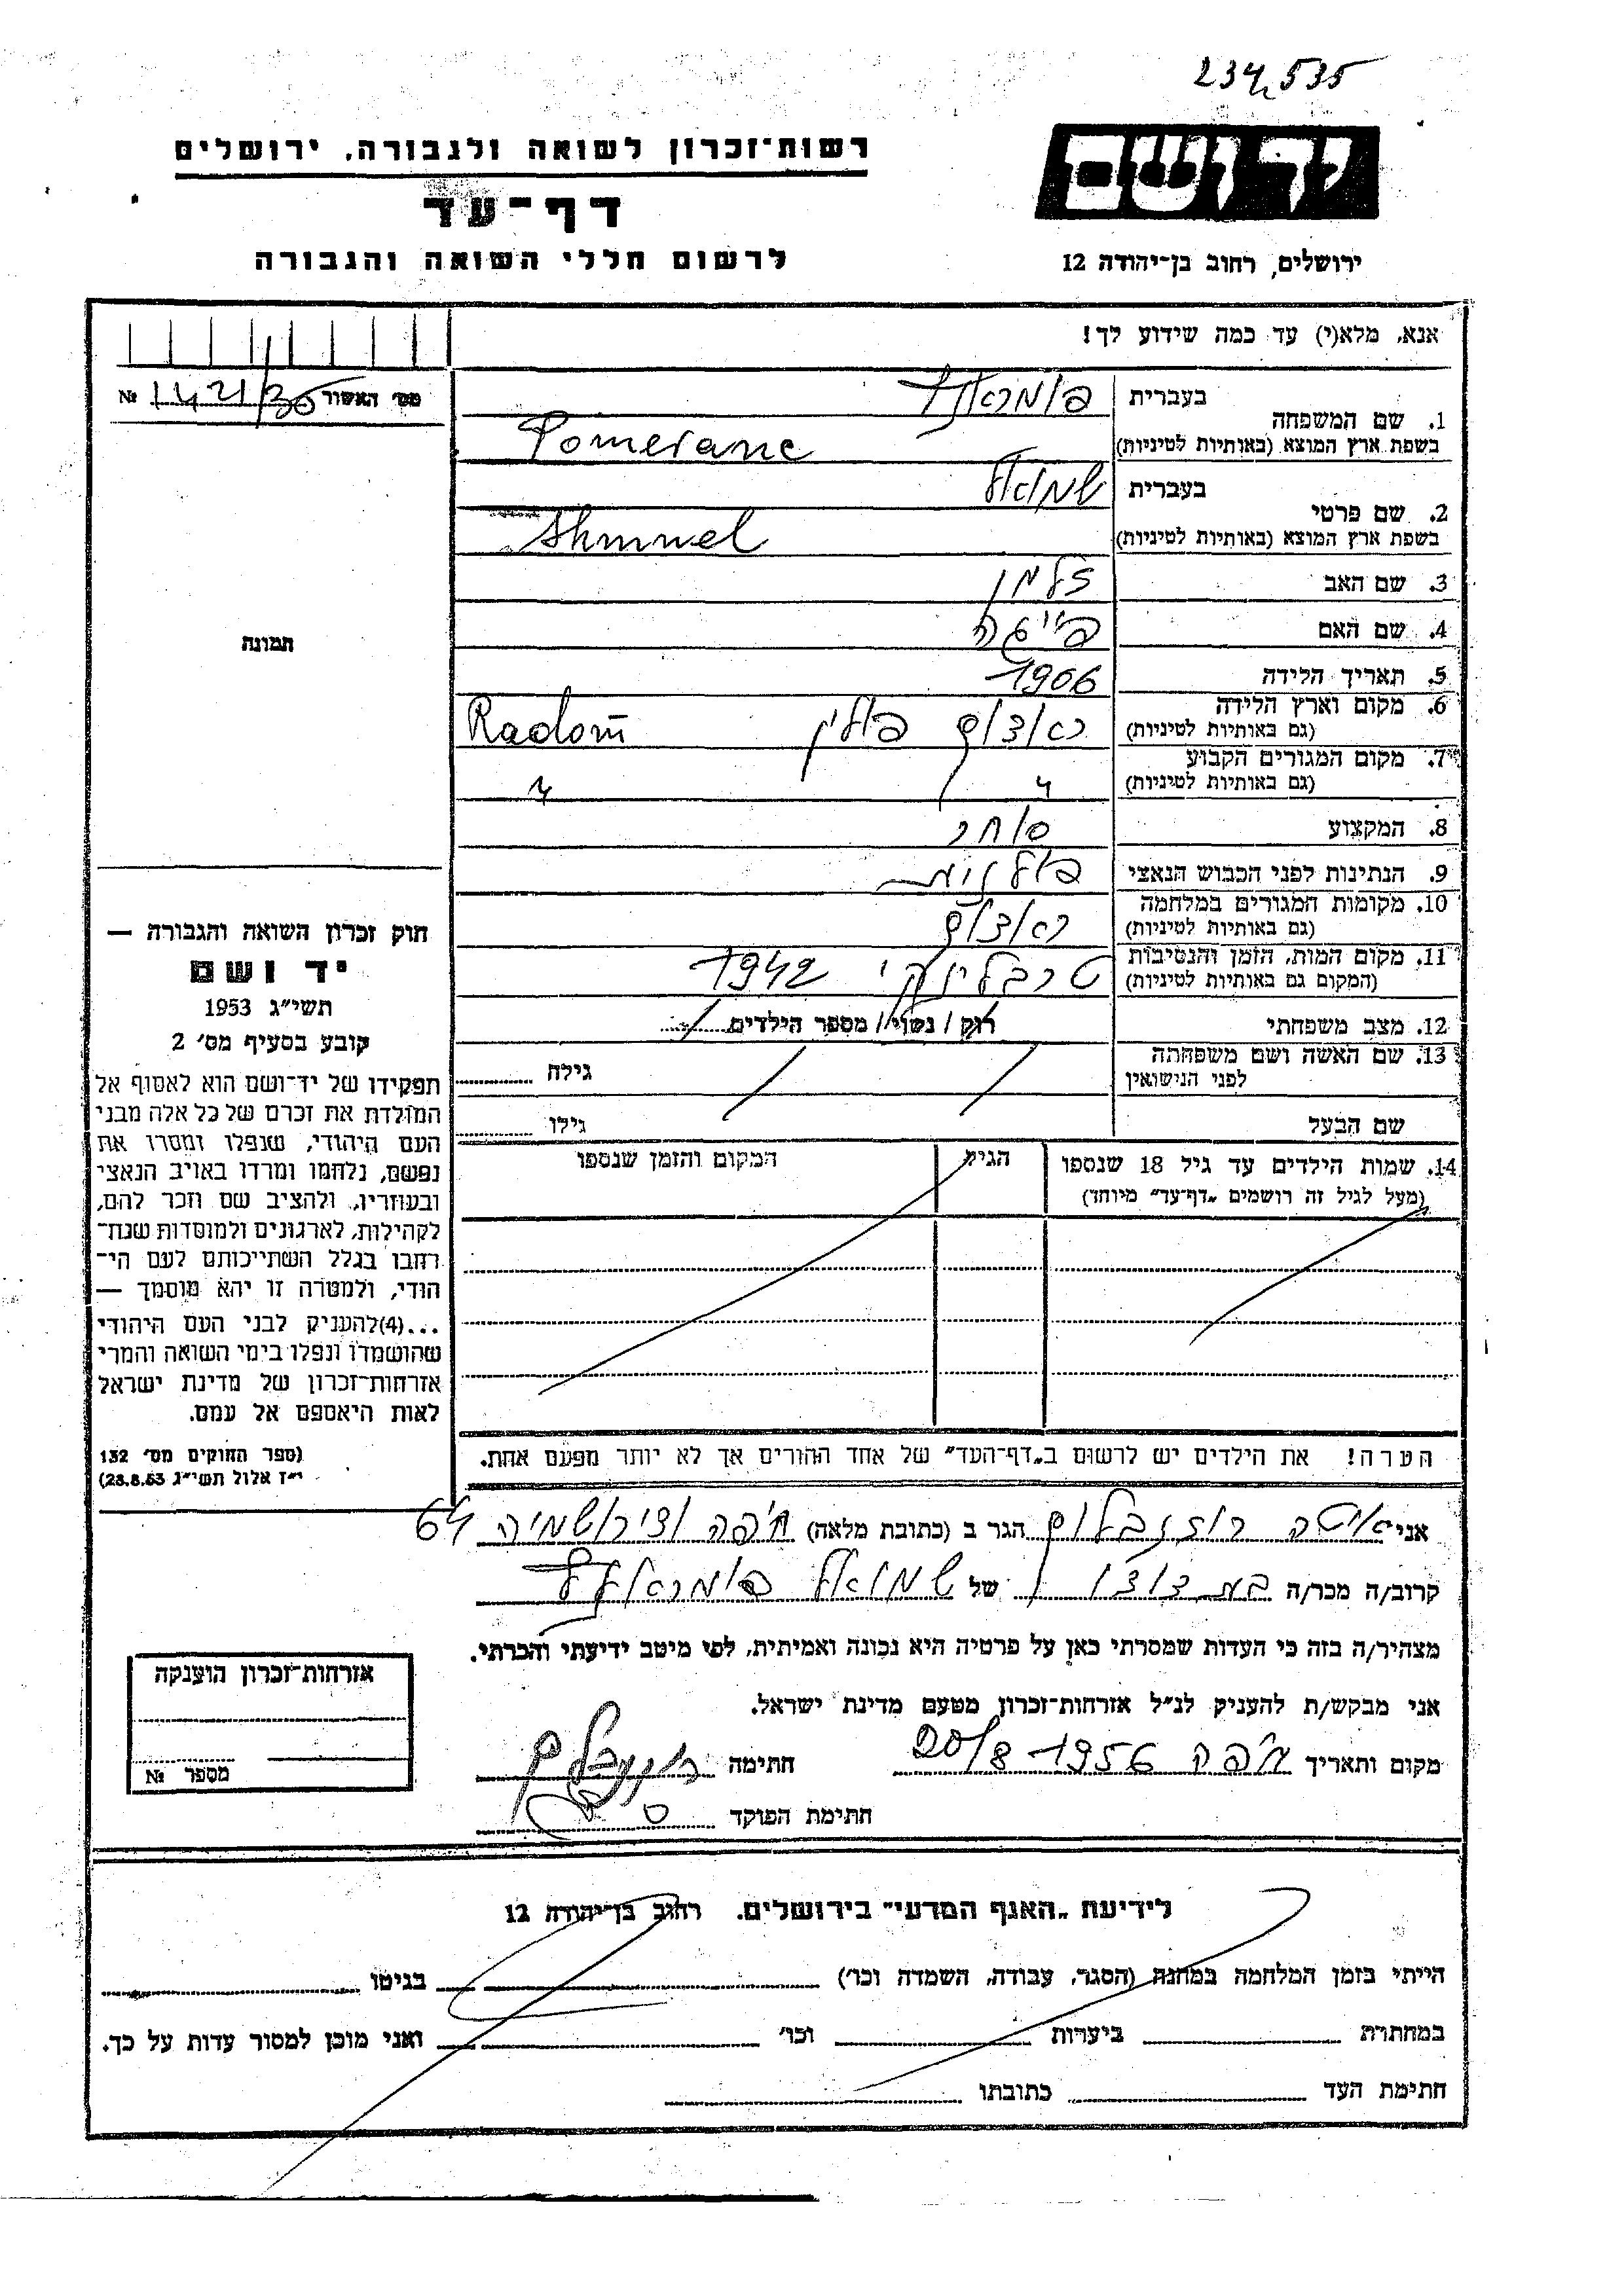 234,535
רשות־זכרון לשואה ולגבורה, ירושלים
יד ושם
דף־עד
לרשום חללי השואה והגבורה
ירושלים, רחוב בן־יהודה 12
אנא, מלא(י) עד כמה שידוע לך!
מס׳ האשור 1421/36 №
בעברית
1. שם המשפחה
בשפת ארץ המוצא (באותיות לטיניות) Pomeranc
בעברית שמואל
2. שם פרטי
בשפת ארץ המוצא (באותיות לטיניות) Shmuel
3. שם האב זלמן
4. שם האם
5. תאריך הלידה 1906
6. מקום וארץ הלידה ראדום פולין Radom
(גם באותיות לטיניות)
7. מקום המגורים הקבוע
(גם באותיות לטיניות) " "
8. המקצוע סוחר
9. הנתינות לפני הכבוש הנאצי פולנית
10. מקומות המגורים במלחמה ראדום
(גם באותיות לטיניות)
11. מקום המות, הזמן והנסיבות טרבלינקי 1942
(המקום גם באותיות לטיניות)
12. מצב משפחתי רוק / נשוי / מספר הילדים
13. שם האשה ושם משפחתה
לפני הנישואין
גילה
שם הבעל גילו
14. שמות הילדים עד גיל 18 שנספו הגיל המקום והזמן שנספו
(מעל לגיל זה רושמים „דף־עד״ מיוחד)
הערה! את הילדים יש לרשום ב„דף־העד״ של אחד ההורים אך לא יותר מפעם אחת.
תמונה
חוק זכרון השואה והגבורה —
יד ושם
תשי״ג 1953
קובע בסעיף מס׳ 2
תפקידו של יד־ושם הוא לאסוף אל
המולדת את זכרם של כל אלה מבני
העם היהודי, שנפלו ומסרו את
נפשם, נלחמו ומרדו באויב הנאצי
ובעוזריו, ולהציב שם וזכר להם,
לקהילות, לארגונים ולמוסדות שנח־
רבו בגלל השתייכותם לעם הי־
הודי, ולמטרה זו יהא מוסמך —
...(4)להעניק לבני העם היהודי
שהושמדו ונפלו בימי השואה והמרי
אזרחות־זכרון של מדינת ישראל
לאות היאספם אל עמם.
(ספר החוקים מס׳ 132
י״ז אלול תשי״ג 28.8.53)
אני רוזנבלום הגר ב (כתובת מלאה) חיפה 64
קרוב/ה מכר/ה בת דודו של שמואל
מצהיר/ה בזה כי העדות שמסרתי כאן על פרטיה היא נכונה ואמיתית, לפי מיטב ידיעתי והכרתי.
אני מבקש/ת להעניק לנ״ל אזרחות־זכרון מטעם מדינת ישראל.
מקום ותאריך חיפה 20/8 1956 חתימה
חתימת הפוקד
אזרחות־זכרון הוענקה
מספר №
לידיעת „האגף המדעי״ בירושלים. רחוב בן־יהודה 12
הייתי בזמן המלחמה במחנה (הסגר, עבודה, השמדה וכו׳) בגיטו
במחתרת ביערות וכו׳ ואני מוכן למסור עדות על כך.
חתימת העד כתובתו